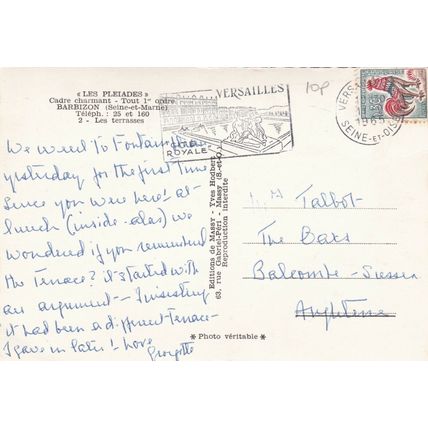 « LES PLEIADES »
Cadre charmant - Tout 1er ordre
BARBIZON (Seine-et-Marne)
Téléph. : 25 et 160
2 - Les terrasses
VERSAILLES
ROYALE
10p
VERSAILLES
1965
SEINE-ET-OISE
We went to Fontainebleau
yesterday for the first time
since you were here! at
lunch (inside - alas) we
wondered if you remembered
the Terrace? it started with
an argument -- I insisting
it had been a different Terrace -
I gave in later! Love
Georgette
Editions de Massy - Yves Huibert
63, rue Gabriel-Péri - Massy (S.-et-O.)
Reproduction interdite
Talbot
The Bats
Balcombe - Sussex
Angleterre
* Photo véritable *